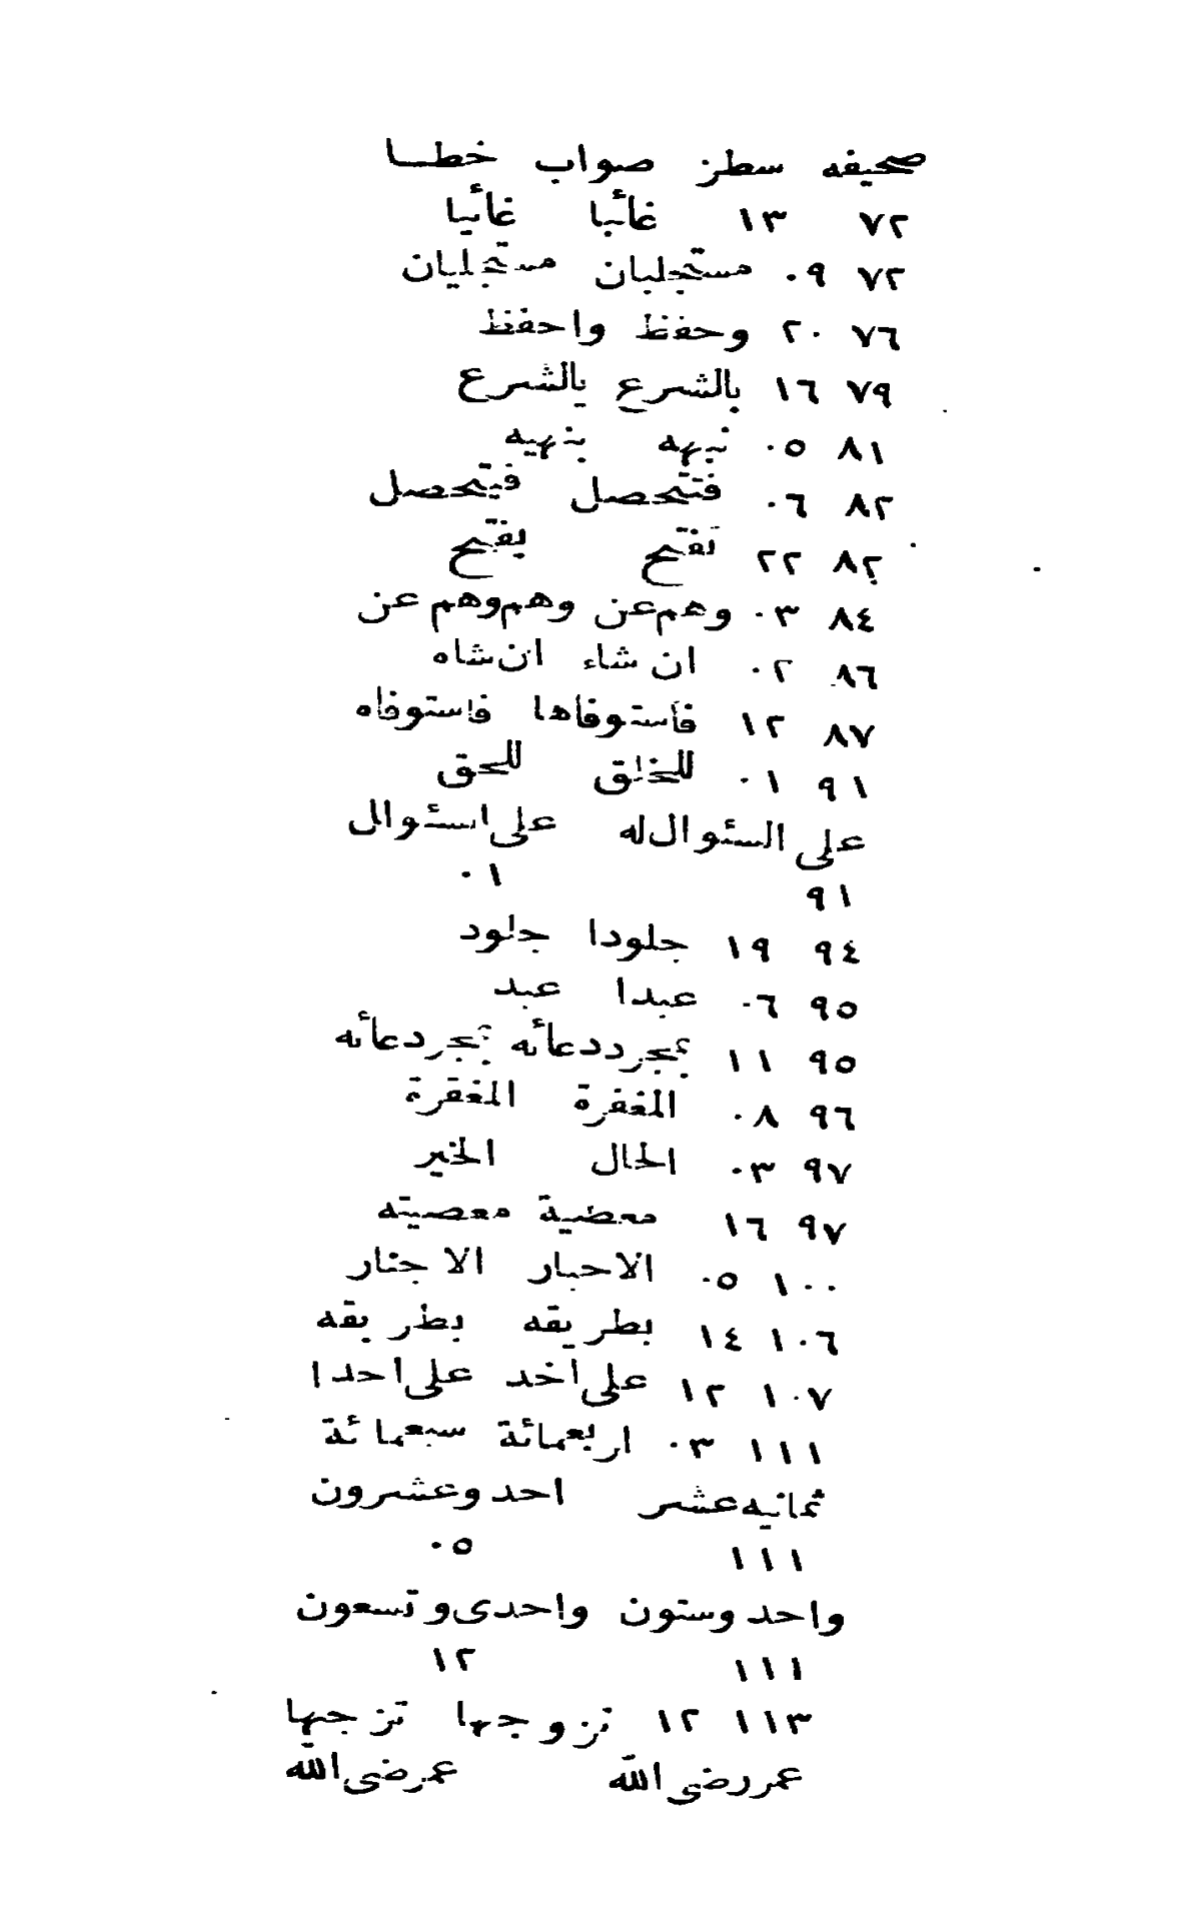 صحيفه سطز صواب خطـا
٧٢ ١٣ غائبا غائيا
٧٢ ٠٩ مستجلبان مستجليان
٧٦ ٢٠ وحفظ واحفظ
٧٩ ١٦ بالشرع يالشرع
٨١ ٠٥ نبهه بنهيه
٨٢ ٠٦ فتتحصل فيتحصل
٨٢ ٢٢ تفتح يفتح
٨٤ ٠٣ وهم عن وهم وهم عن
٨٦ ٠٢ ان شاء ان شاه
٨٧ ١٢ فاستوفاها فاستوفاه
٩١ ٠١ للخلق للحق
على السئوال له على اسئوال
٩١ ٠١
٩٤ ١٩ جلودا جلود
٩٥ ٠٦ عبدا عبد
٩٥ ١١ بمجرد دعائه بمجر دعائه
٩٦ ٠٨ المغفرة المغقرة
٩٧ ٠٣ الحال الخير
٩٧ ١٦ معضية معصيته
١٠٠ ٠٥ الاحبار الاجنار
١٠٦ ١٤ بطريقه بظريقه
١٠٧ ١٢ على اخد على احدا
١١١ ٠٣ اربعمائة سبعمائة
ثمانيه عشر احد وعشرون
١١١ ٠٥
واحد وستون واحدى وتسعون
١١١ ١٢
١١٣ ١٢ تزوجها تزجيها
عمر رضى الله عمرضى الله